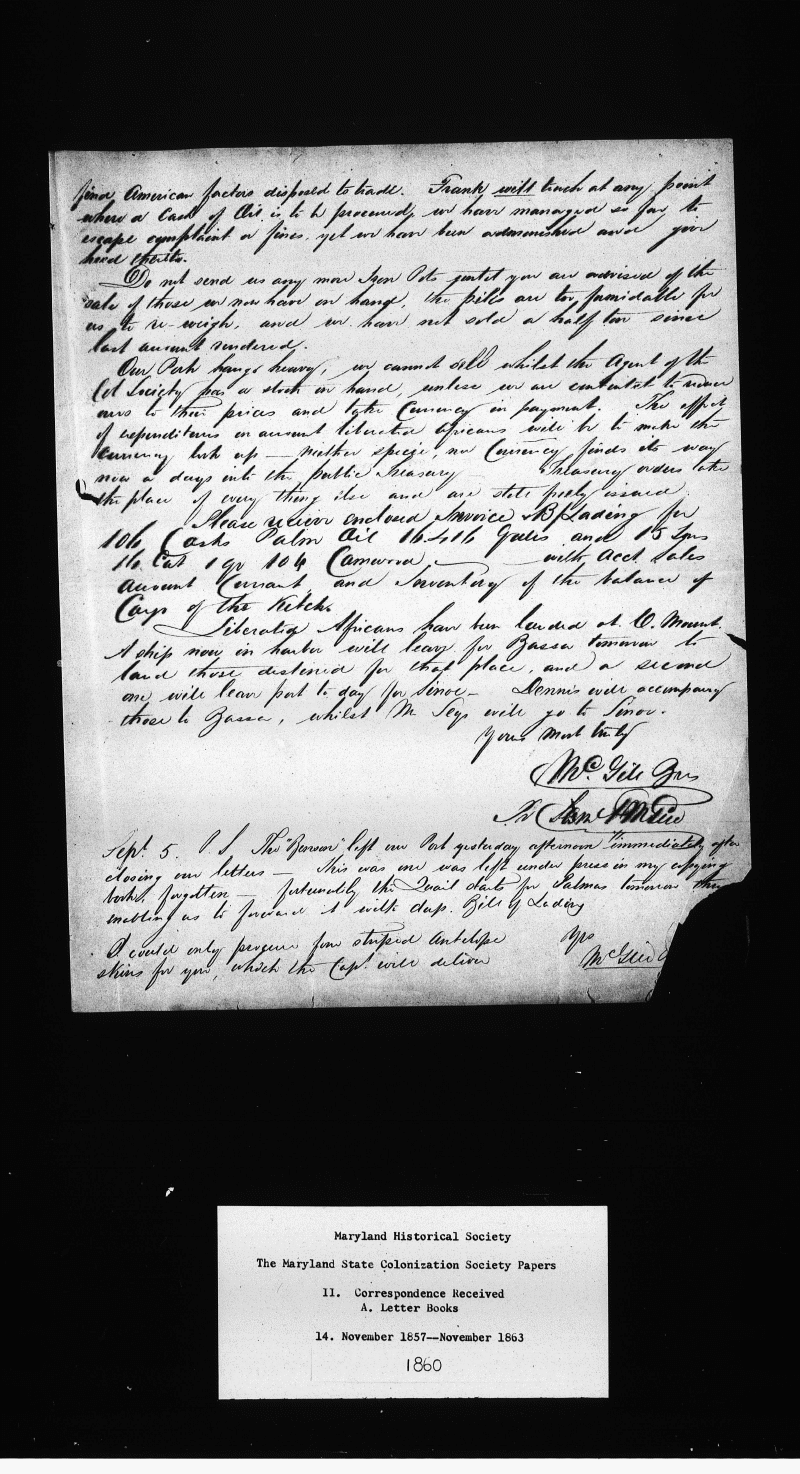 find American factors disposed to trade. Frank will touch at any point
where a Cask of Oil is to be procured, we have managed so far to
escape complaint or fines, yet we have been admonished and give
heed thereto.
Do not send us any more Iron Pots until you are advised of the
sale of those we now have on hand, the piles are too formidable for
us to re-weigh, and we have not sold a half ton since
last account rendered.
Our Pork hangs heavy, we cannot sell whilst the Agent of the
Col Society has a stock on hand, unless we are contented to reduce
ours to their prices and take Currency in payment. The effect
of expenditures on account liberated africans will be to make the
Currency look up — neither specie, nor Currency finds its way
now a days into the public Treasury Treasury orders take
the place of every thing else and are still freely issued.
Please receive enclosed Invoice B/Lading for
106 Casks Palm Oil 16.416 Galls and 15 Tons
16 Cwt 1 qr 10 Camwood — with Acct Sales
Account Current and Inventory of the balance of
Cargo of the Ketch.
Liberated Africans have been landed at C. Mount.
A ship now in harbor will leave for Bassa tomorrow to
land those destined for that place, and a second
one will leave port to day for Sinoe — Dennis will accompany
those to Bassa, whilst Mr Seys will go to Sinoe.
Yours most truly
McGill Bros
Pr Saml F McGill
Sept. 5. P.S. The "Benson" left our Port yesterday afternoon immediately after
closing our letters — this was one was left under press in my copying
book, forgotten — fortunately the Quail starts for Palmas tomorrow thus
enabling us to forward it with dup. Bill of Lading
I could only procure four striped Antelope
skins for you, which the Capt. will deliver
Yrs
McGill
Maryland Historical Society
The Maryland State Colonization Society Papers
II. Correspondence Received
A. Letter Books
14. November 1857--November 1863
1860